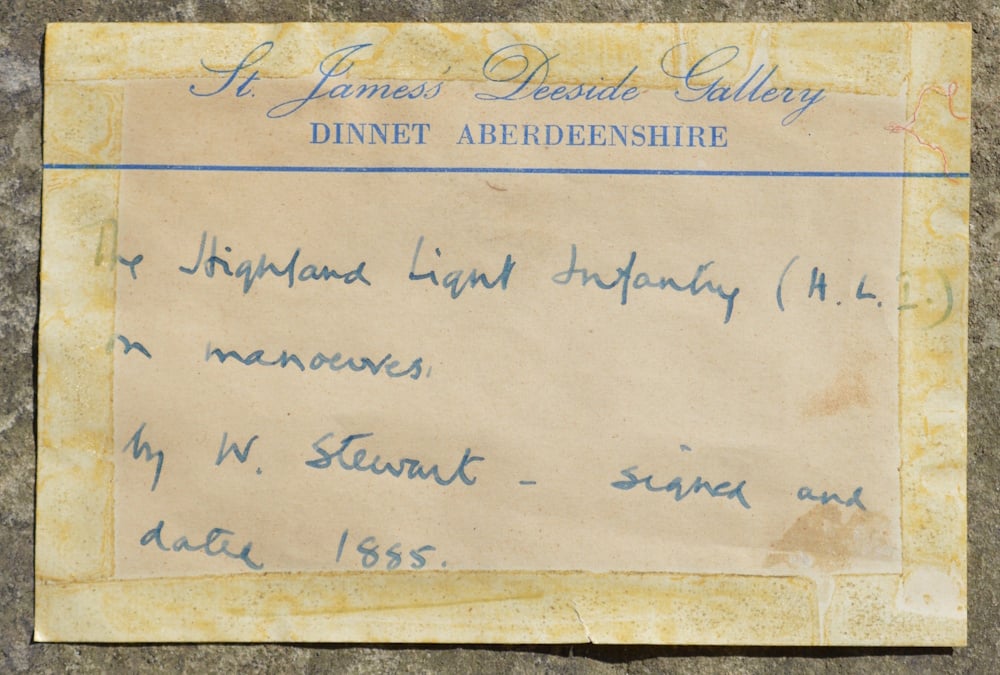 St. James's Deeside Gallery
DINNET ABERDEENSHIRE
The Highland Light Infantry (H. L. I.)
on manoeuvres.
by W. Stewart - signed and
dated 1885.